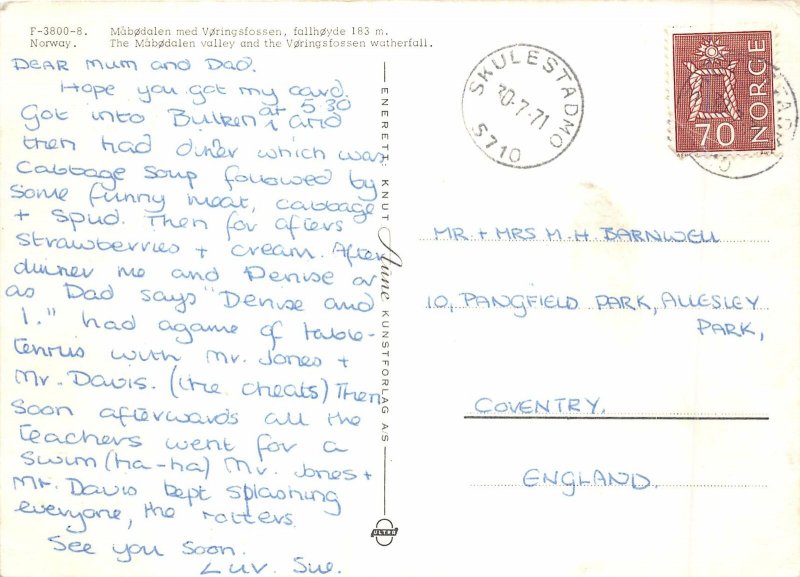 F-3800-8. Måbødalen med Vøringsfossen, fallhøyde 183 m.
Norway. The Måbødalen valley and the Vøringsfossen watherfall.
DEAR MUM AND DAD.
Hope you got my card.
Got into Bulken at 5 30 and
then had diner which was
cabbage soup followed by
some funny meat, cabbage
+ spud. Then for afters
strawberries + cream. After
dinner me and Denise or
as Dad says "Denise and
I." had agame of table-
tennis with Mr. Jones +
Mr. Davis. (the cheats) Then
soon afterwards all the
teachers went for a
swim (ha-ha) Mr. Jones +
Mr. Davis kept splashing
everyone, the rotters.
See you soon.
Luv. Sue.
ENERETT: KNUT Aune KUNSTFORLAG A/S
ULTRA
SKULESTADMO
30-7-71
5710
NORGE
70
MR. + MRS M. H. BARNWELL
10, PANGFIELD PARK, ALLESLEY
PARK,
COVENTRY.
ENGLAND.